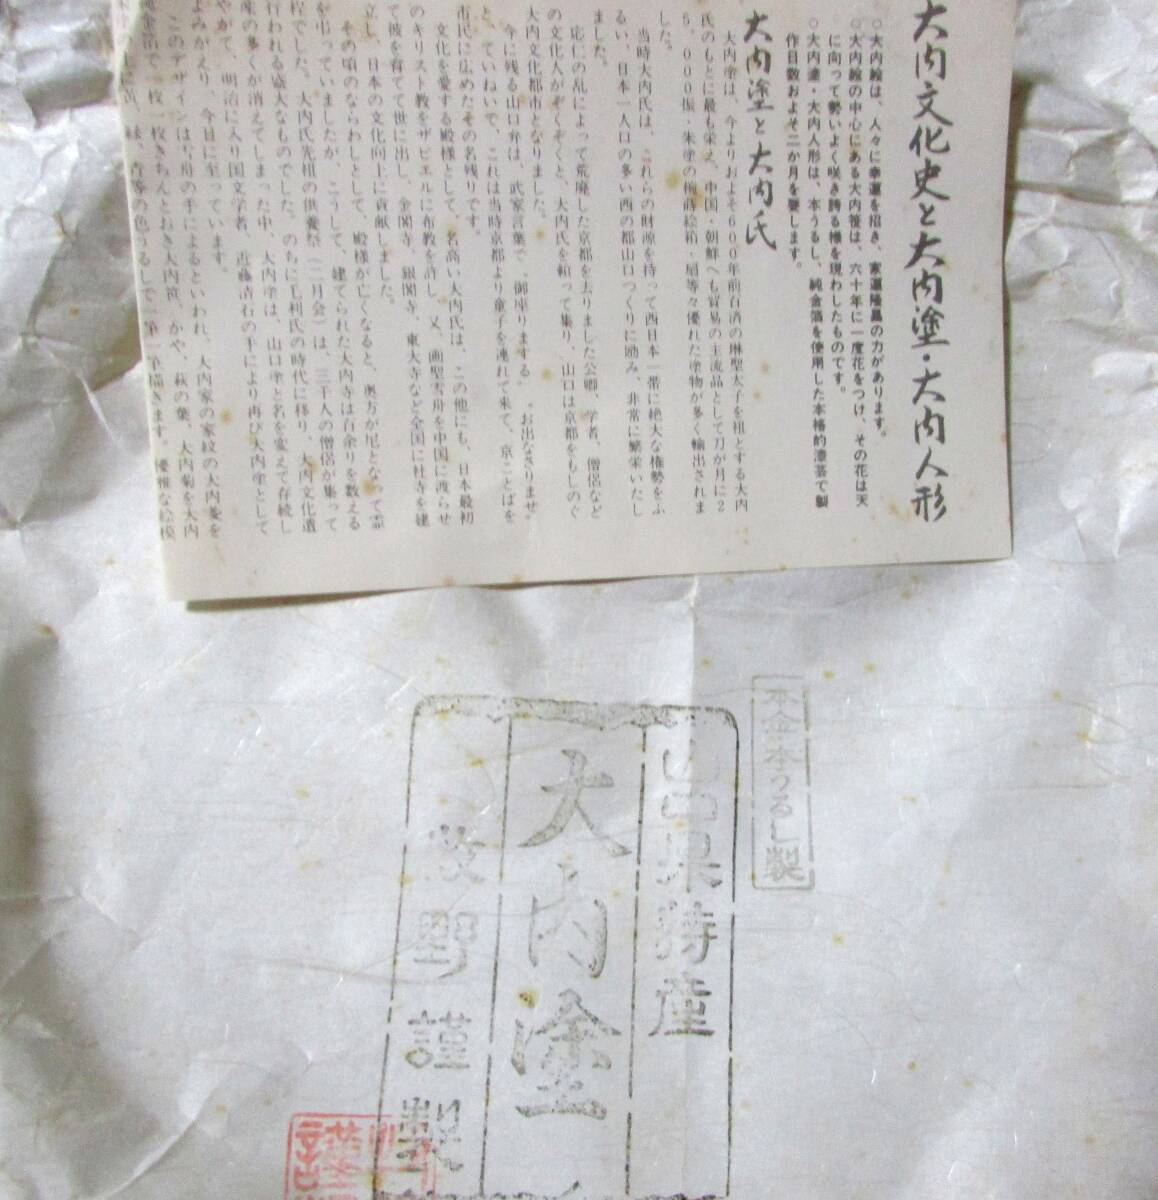 大内文化史と大内塗・大内人形
○大内絵は、人々に幸運を招き、家運隆昌の力があります。
○大内絵の中心にある大内笹は、六十年に一度花をつけ、その花は天
に向って勢いよく咲き誇る様を現わしたものです。
○大内塗・大内人形は、本うるし、純金箔を使用した本格的漆芸で製
作日数およそ二か月を要します。
大内塗と大内氏
大内塗は、今よりおよそ600年前百済の琳聖太子を祖とする大内
氏のもとに最も栄え、中国・朝鮮へも貿易の主流品として刀が月に2
5,000振・朱塗の梅蒔絵箱・扇等々優れた塗物が多く輸出されま
した。
当時大内氏は、これらの財源を持って西日本一帯に絶大な権勢をふ
るい、日本一人口の多い西の都山口つくりに励み、非常に繁栄いたし
ました。
応仁の乱によって荒廃した京都を去りました公卿、学者、僧侶など
の文化人がぞくぞくと、大内氏を頼って集り、山口は京都をもしのぐ
大内文化都市となりました。
今に残る山口弁は、武家言葉で〝御座りまする〟〝お出なさりませ〟
と、ていねいで、これは当時京都より童子を連れて来て、京ことばを
市民に広めたその名残りです。
文化を愛する殿様として、名高い大内氏は、この他にも、日本最初
のキリスト教をザビエルに布教を許し、又、画聖雪舟を中国に渡らせ
て彼を育てて世に出し、金閣寺、銀閣寺、東大寺など全国に社寺を建
立し、日本の文化向上に貢献しました。
その頃のならわしとして、殿様が亡くなると、奥方が尼となって霊
を弔っていましたが、こうして、建てられた大内寺は百余りを数える
程でした。大内氏先祖の供養祭(二月会)は、三千人の僧侶が集って
行われる盛大なものでした。のちに毛利氏の時代に移り、大内文化遺
産の多くが消えてしまった中、大内塗は、山口塗と名を変えて存続し
やがて、明治に入り国文学者、近藤清石の手により再び大内塗として
よみがえり、今日に至っています。
このデザインは雪舟の手によるといわれ、大内家の家紋の大内菱を
純金箔で一枚一枚きちんとおき大内笹、かや、萩の葉、大内菊を大内
黄、緑、青等の色うるしで一筆一筆描きます。優雅な絵模
本金本うるし製
山口県特産
大内塗
野謹製
謹